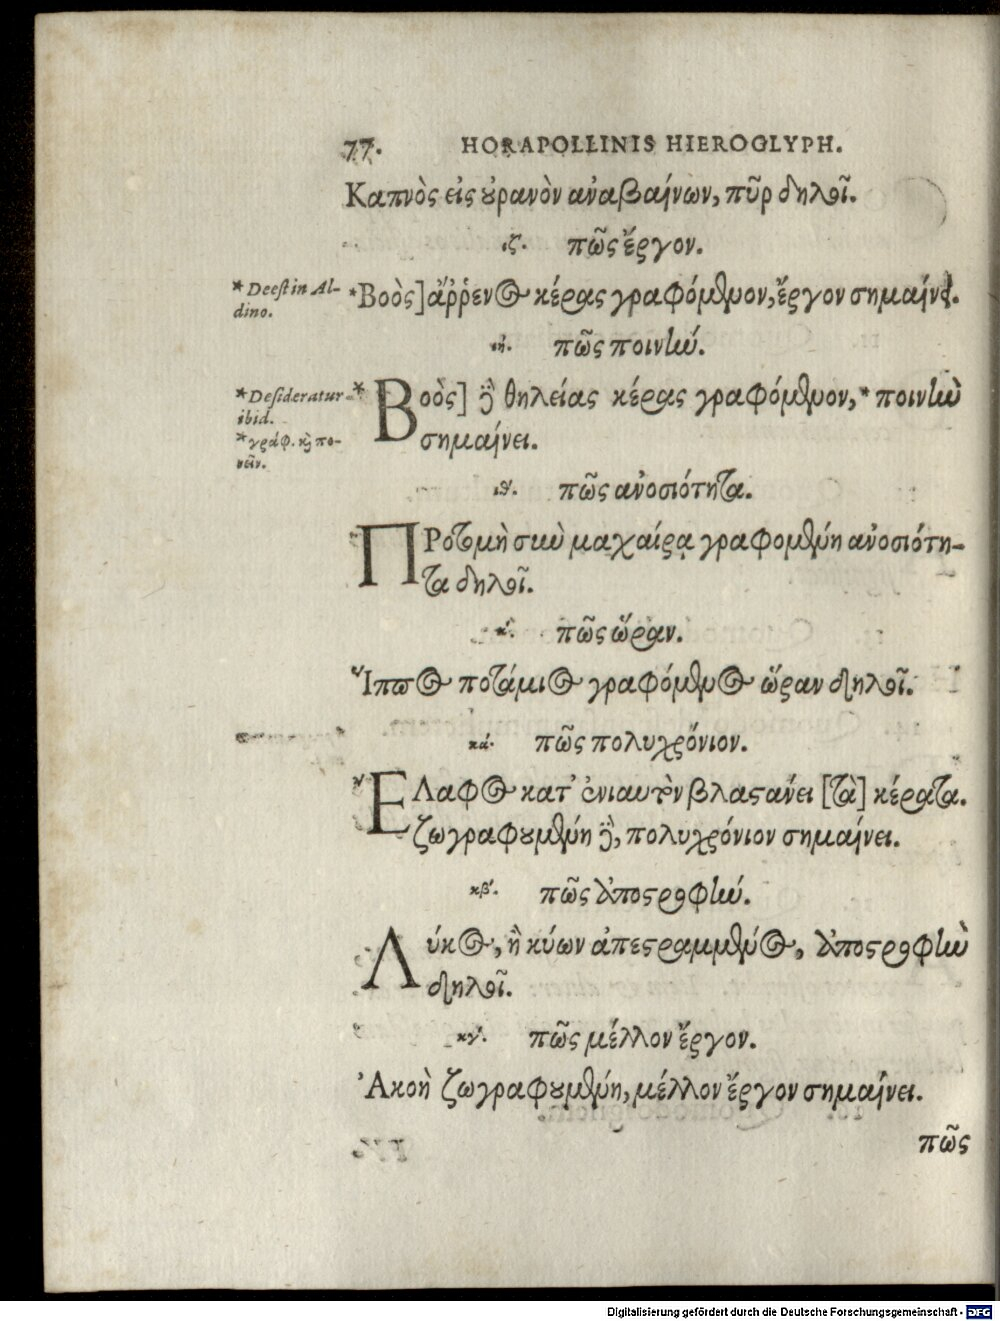 77. HORAPOLLINIS HIEROGLYPH.
Καπνὸς εἰς ȣ̓ρανὸν ἀναβαίνων, πῦρ δηλοῖ.
ιζ. πῶς ἔργον.
*Deest in Al-
dino.
*Βοὸς] ἄῤῥενος κέρας γραφόμενον, ἔργον σημαίνει.
ιή. πῶς ποινίω.
*Desideratur
ibid.
*γράφ. κὶ πο-
νεῖν.
*Βοὸς] δὲ θηλείας κέρας γραφόμενον,* ποινίω
σημαίνει.
ιθ'. πῶς ἀνοσιότητα.
ΠΡοτομὴ σιω μαχαίρᾳ γραφομένη ἀνοσιότη-
τα δηλοῖ.
κ'. πῶς ὥραν.
Ἵππος ποτάμιος γραφόμενος ὥραν δηλοῖ.
κά. πῶς πολυχρόνιον.
ἜΛαφος κατ' ἐνιαυτὸν βλαστάνει [τὰ] κέρατα.
ζωγραφȣμένη δὲ, πολυχρόνιον σημαίνει.
κβ'. πῶς ἀποστροφίω.
Λύκος, ἢ κύων ἀπεστραμμένος, ἀποστροφίω
δηλοῖ.
κγ'. πῶς μέλλον ἔργον.
Ἀκοὴ ζωγραφȣμένη, μέλλον ἔργον σημαίνει.
πῶς
Digitalisierung gefördert durch die Deutsche Forschungsgemeinschaft - DFG